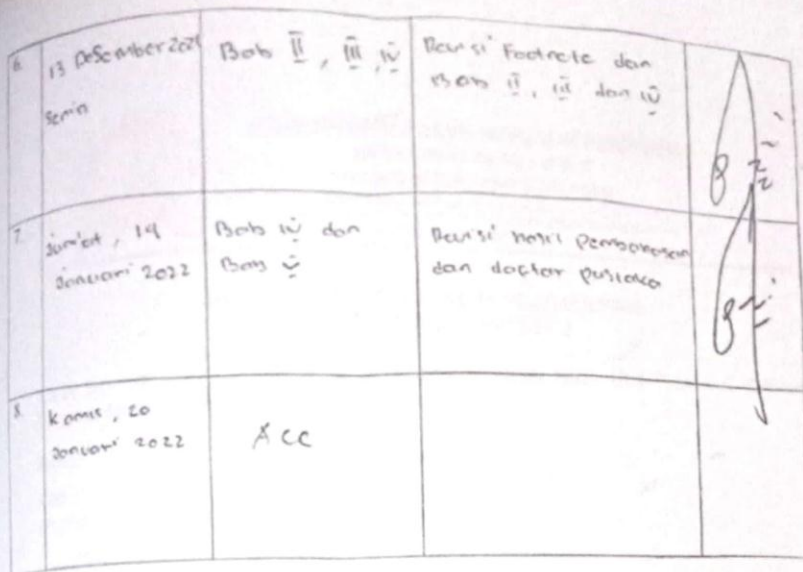 6. 13 Desember 2021
Senin
Bab II, III, IV
Revisi Footnote dan
Bab II, III dan IV
7. Jum'at, 14
Januari 2022
Bab IV dan
Bab V
Revisi hasil pembahasan
dan daftar pustaka
8. Kamis, 20
Januari 2022
ACC